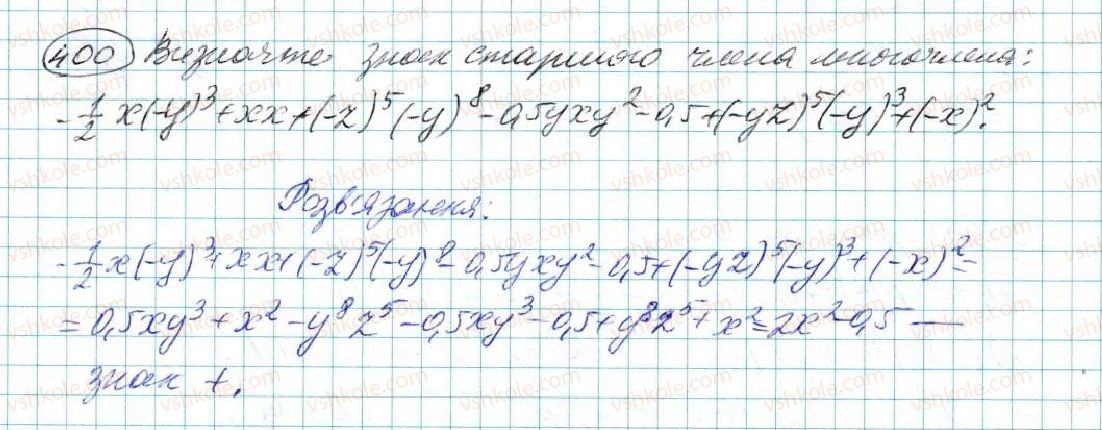 400 Визначте знак старшого члена многочлена:
-1/2 x(-y)^3+xx+(-z)^5(-y)^8-0,5yxy^2-0,5+(-yz)^5(-y)^3+(-x)^2.
Розв'язання:
-1/2 x(-y)^3+xx+(-z)^5(-y)^8-0,5yxy^2-0,5+(-yz)^5(-y)^3+(-x)^2=
=0,5xy^3+x^2-y^8z^5-0,5xy^3-0,5+y^8z^5+x^2=2x^2-0,5 —
знак +.